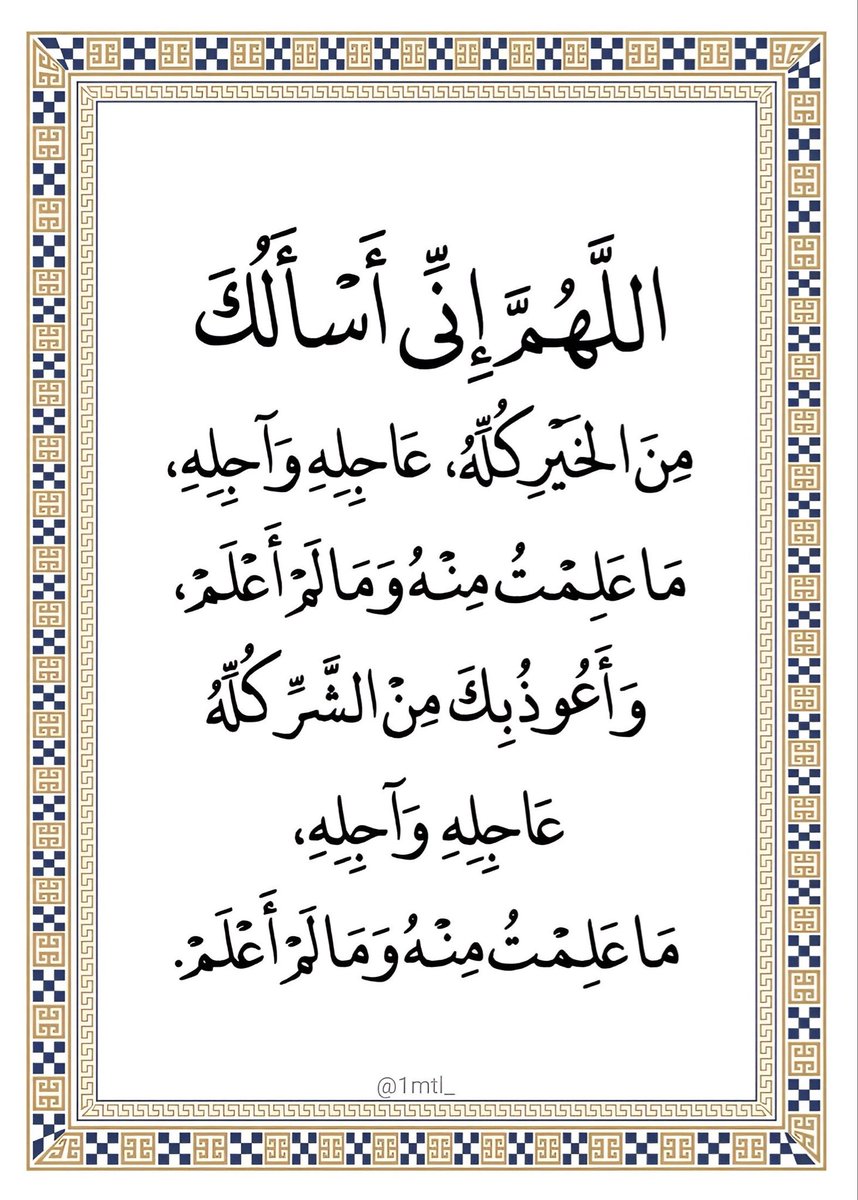 اللَّهُمَّ إِنِّي أَسْأَلُكَ
مِنَ الْخَيْرِ كُلِّهُ، عَاجِلِهِ وَآجِلِهِ،
مَا عَلِمْتُ مِنْهُ وَمَا لَمْ أَعْلَمْ،
وَأَعُوذُ بِكَ مِنْ الشَّرِّ كُلِّهُ
عَاجِلِهِ وَآجِلِهِ،
مَا عَلِمْتُ مِنْهُ وَمَا لَمْ أَعْلَمْ.
@1mtl_